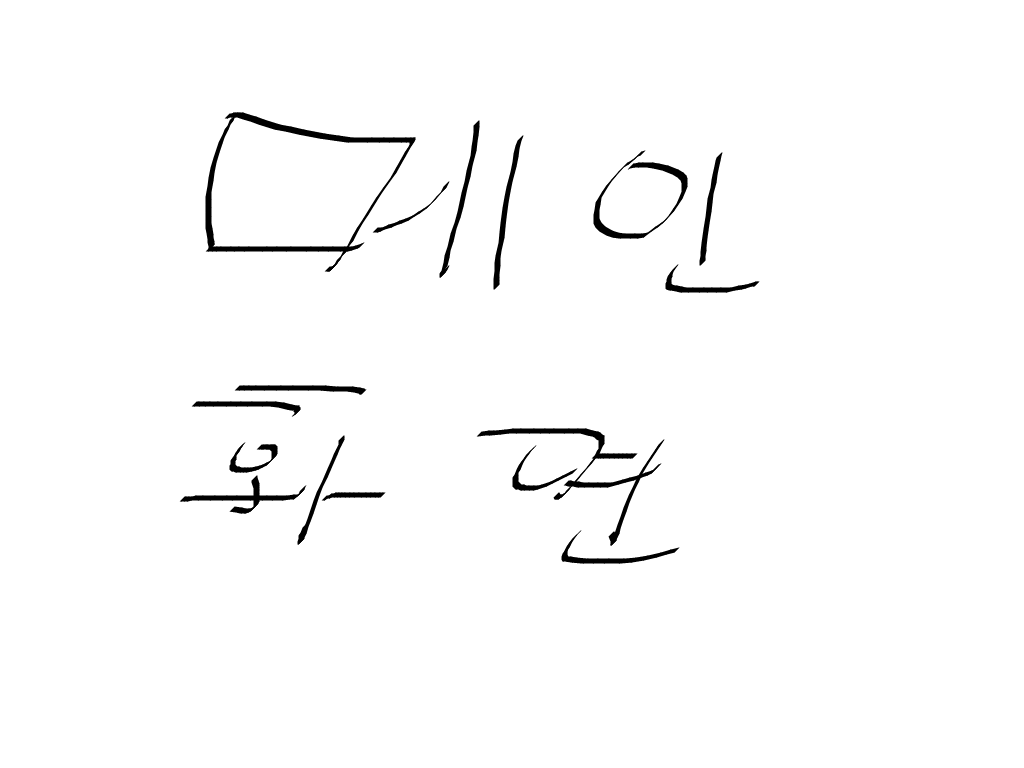 메인
화면